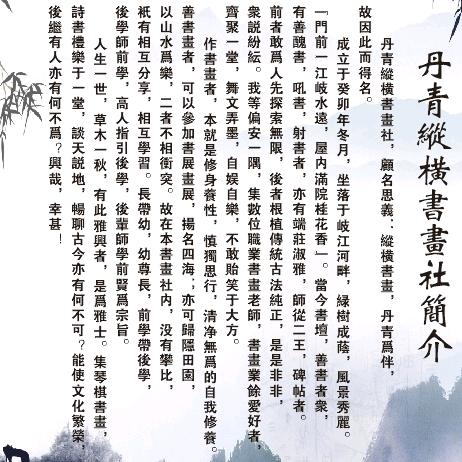 丹青縱橫書畫社簡介
丹青縱橫書畫社，顧名思義：縱橫書畫，丹青爲伴，
故因此而得名。
成立于癸卯年冬月，坐落于岐江河畔，緑樹成蔭，風景秀麗。
『門前一江岐水遠，屋内滿院桂花香』。當今書壇，善書者衆，
有善醜書，吼書，射書者，亦有端莊淑雅，師從二王，碑帖者。
前者敢爲人先探索無限，後者根植傳統古法純正，是是非非，
衆説紛紜。我等偏安一隅，集數位職業書畫老師，書畫業餘愛好者，
齊聚一堂，舞文弄墨，自娱自樂，不敢貽笑于大方。
作書畫者，本就是修身養性，慎獨思行，清净無爲的自我修養。
善書畫者，可以參加書展畫展，揚名四海；亦可歸隱田園，
以山水爲樂，二者不相衝突。故在本書畫社内，没有攀比，
衹有相互分享，相互學習。長帶幼，幼尊長，前學帶後學，
後學師前學，高人指引後學，後輩師學前賢爲宗旨。
人生一世，草木一秋，有此雅興者，是爲雅士。集琴棋書畫，
詩書禮樂于一堂，談天説地，暢聊古今亦有何不可？能使文化繁榮，
後繼有人亦有何不爲？興哉，幸甚！